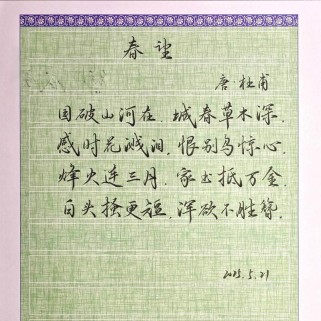 春望
唐 杜甫
国破山河在，城春草木深，
感时花溅泪，恨别鸟惊心，
烽火连三月，家书抵万金，
白头搔更短，浑欲不胜簪，
2025.5.21